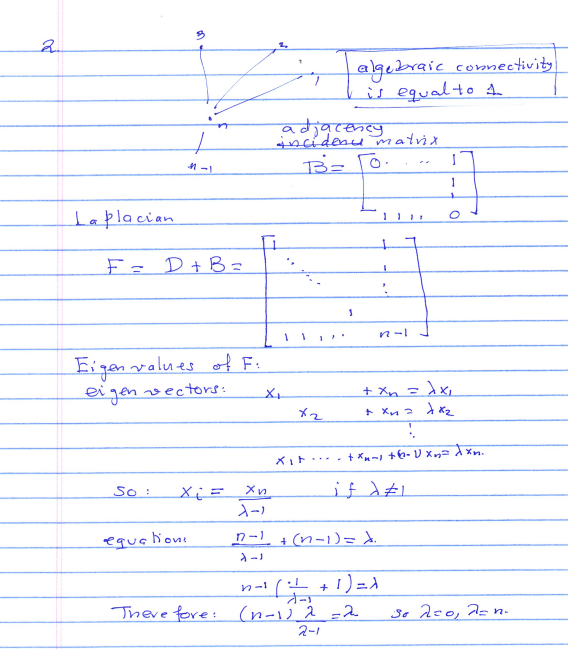 2.
3
2
1
n
n-1
algebraic connectivity
is equal to 1
adjacency
incidence matrix
B = [ 0 . . . . 1
1
1
1 1 1 1 0 ]
Laplacian
F = D + B = [ 1 1
1
1
1 1 1 . . . n-1 ]
Eigenvalues of F:
eigenvectors: x₁ + xₙ = λx₁
x₂ + xₙ = λx₂
⋮
x₁ + ···· + xₙ₋₁ + (n-1) xₙ = λxₙ.
So: xᵢ = xₙ / (λ-1) if λ≠1
equation: (n-1)/(λ-1) + (n-1) = λ.
n-1 ( 1/(λ-1) + 1 ) = λ
Therefore: (n-1) λ/(λ-1) = λ so λ=0, λ=n.